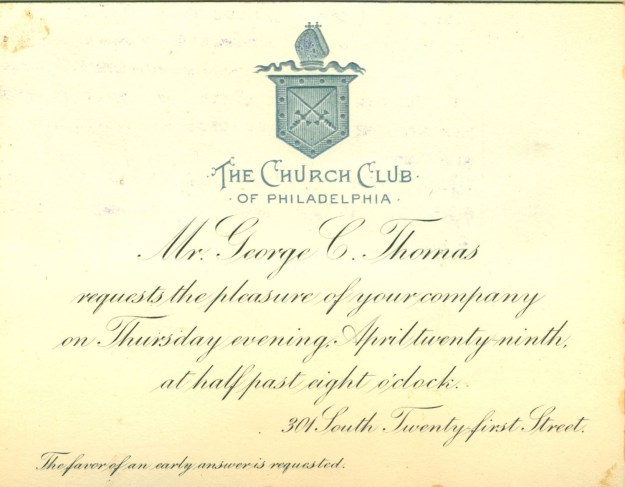 THE CHURCH CLUB
OF PHILADELPHIA
Mr. George C. Thomas
requests the pleasure of your company
on Thursday evening, April twenty-ninth,
at half past eight o'clock.
301 South Twenty-first Street.
The favor of an early answer is requested.